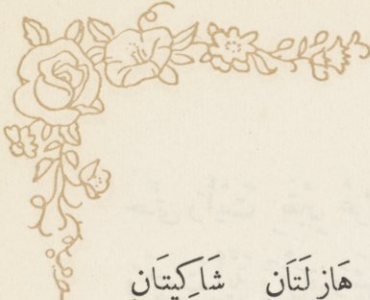 هَازِلَتَانِ شَاكِيتَانِ